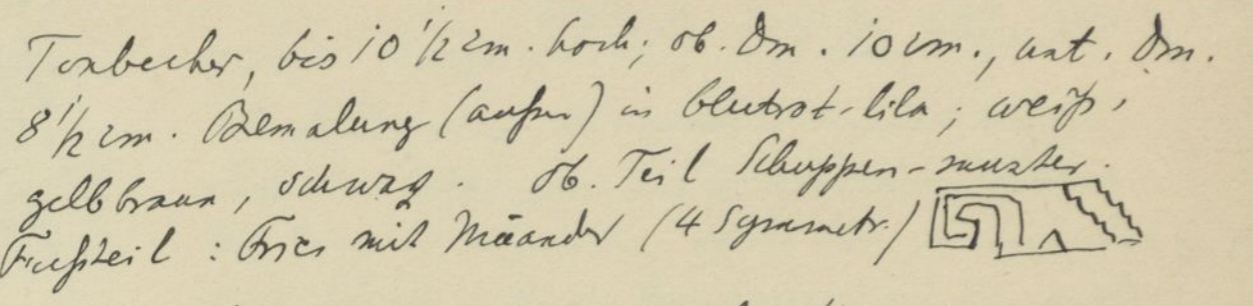 Tonbecher, bis 10 1/2 cm. hoch; ob. Dm. 10 cm., unt. Dm.
8 1/2 cm. Bemalung (außen) in blutrot-lila; weiß,
gelbbraun, schwarz. ob. Teil Schuppen-muster.
Fußteil: Fries mit Mäander (4 Symmetr.)